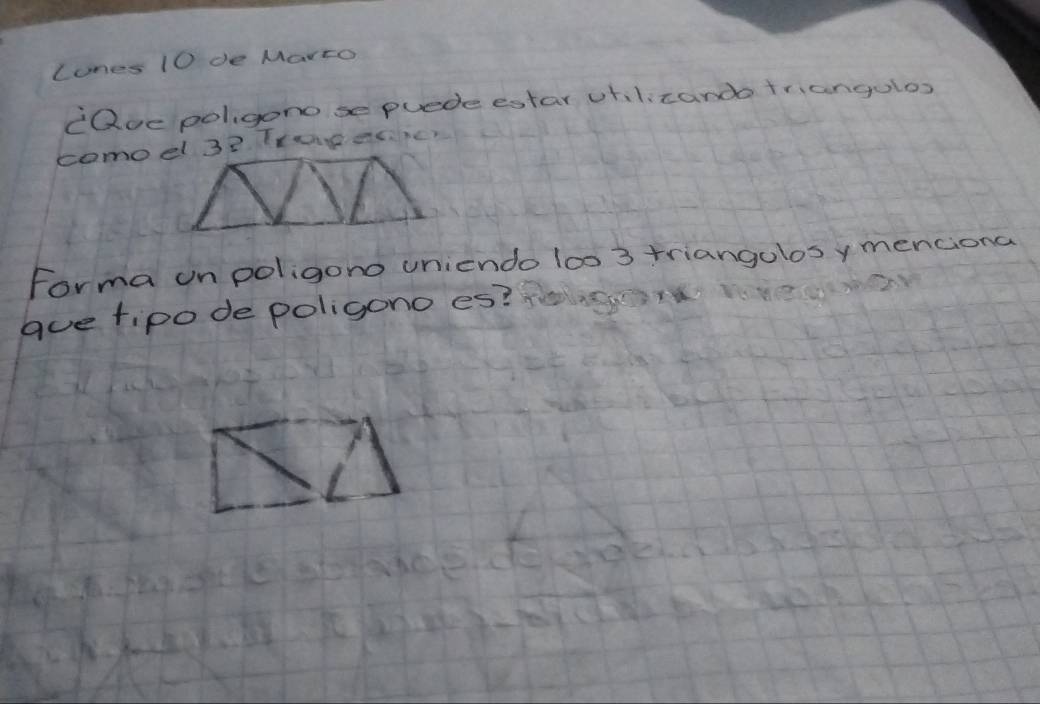 Lunes 10 de Marzo
¿Que poligono se puede estar utilizando triangulos
como el 3? Trapecio
Forma un poligono uniendo los 3 triangulos y menciona
que tipo de poligono es? Poligono irregular